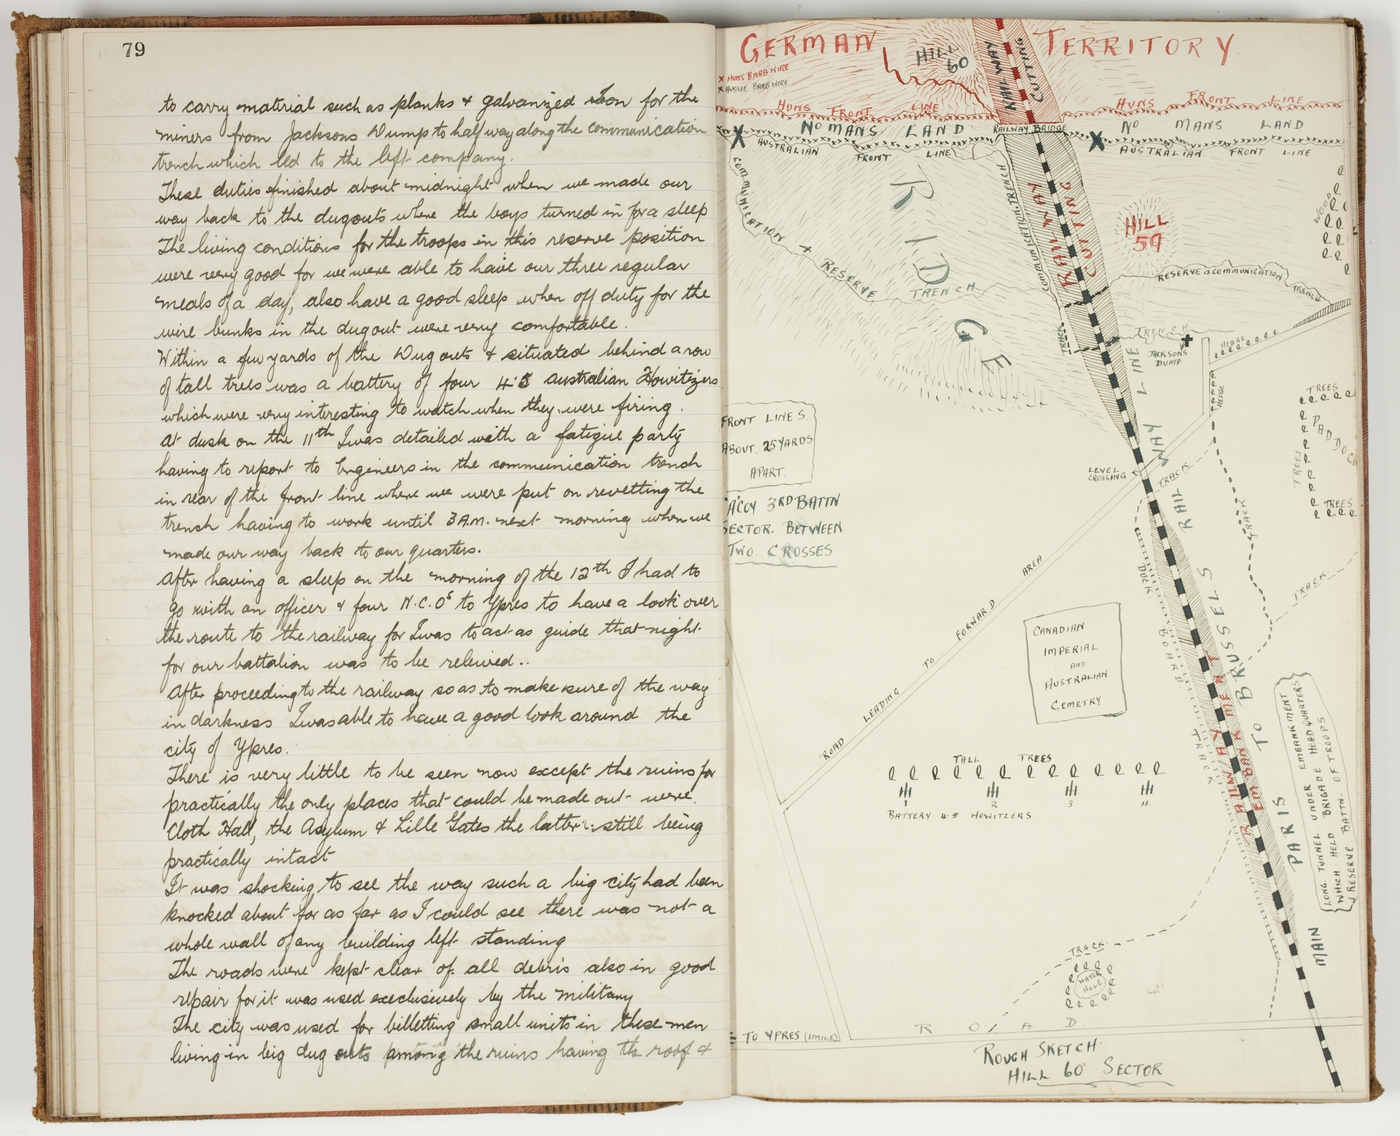 79
to carry material such as planks & galvanized iron for the
miners from Jacksons Dump to half way along the communication
trench which led to the left company.
These duties finished about midnight when we made our
way back to the dugouts where the boys turned in for a sleep
The living conditions for the troops in this reserve position
were very good for we were able to have our three regular
meals of a day, also have a good sleep when off duty for the
wire bunks in the dugout were very comfortable.
Within a few yards of the Dugouts & situated behind a row
of tall trees was a battery of four 4.5 Australian Howitzers
which were very interesting to watch when they were firing.
At dusk on the 11th I was detailed with a fatigue party
having to report to Engineers in the communication trench
in rear of the front line where we were put on revetting the
trench having to work until 3 A.M. next morning when we
made our way back to our quarters.
After having a sleep on the morning of the 12th I had to
go with an officer & four N.C.Os to Ypres to have a look over
the route to the railway for I was to act as guide that night
for our battalion was to be releived..
After proceeding to the railway so as to make sure of the way
in darkness I was able to have a good look around the
city of Ypres.
There is very little to be seen now except the ruins for
practically the only places that could be made out were
Cloth Hall, the Asylum & Lille Gates the latter still being
practically intact
It was shocking to see the way such a big city had been
knocked about for as far as I could see there was not a
whole wall of any building left standing
The roads were kept clear of all debris also in good
repair for it was used execlusively by the military
The city was used for billetting small units in these men
living in big dug outs among the ruins having the roof &
GERMAN TERRITORY
HILL 60
RAILWAY CUTTING
X HUNS BARB WIRE
X AUSSIE BARB WIRE
HUNS FRONT LINE
HUNS FRONT LINE
NO MANS LAND
RAILWAY BRIDGE
NO MANS LAND
X
X
AUSTRALIAN FRONT LINE
AUSTRALIAN FRONT LINE
COMMUNICATION +
RESERVE TRENCH
RIDGE
COMMUNICATION TRENCH
RAILWAY CUTTING
HILL 59
WOODS
RESERVE & COMMUNICATION TRENCH
TRENCH
TRACK
JACKSONS DUMP
HEDGE
HEDGE
TREES
TREES
PADDOCK
TREES
FRONT LINES
ABOUT 25 YARDS
APART.
'A' COY 3RD BATTN
SECTOR BETWEEN
TWO CROSSES
LEVEL CROSSING
TRACK
TRACK
TRACK
DUCK BOARD TRACK
ROAD LEADING TO FORWARD AREA
CANADIAN
IMPERIAL
AND
AUSTRALIAN
CEMETRY
TALL TREES
1 2 3 4
BATTERY 4.5 HOWITZERS
RAILWAY EMBANKMENT
MAIN PARIS TO BRUSSELS RAILWAY LINE
LONG TUNNEL UNDER EMBANKMENT
WHICH HELD BRIGADE HEADQUARTERS
& RESERVE BATTN. OF TROOPS
TRACK
WATER HOLE
ROAD
TO YPRES (1 MILE)
ROUGH SKETCH
HILL 60 SECTOR